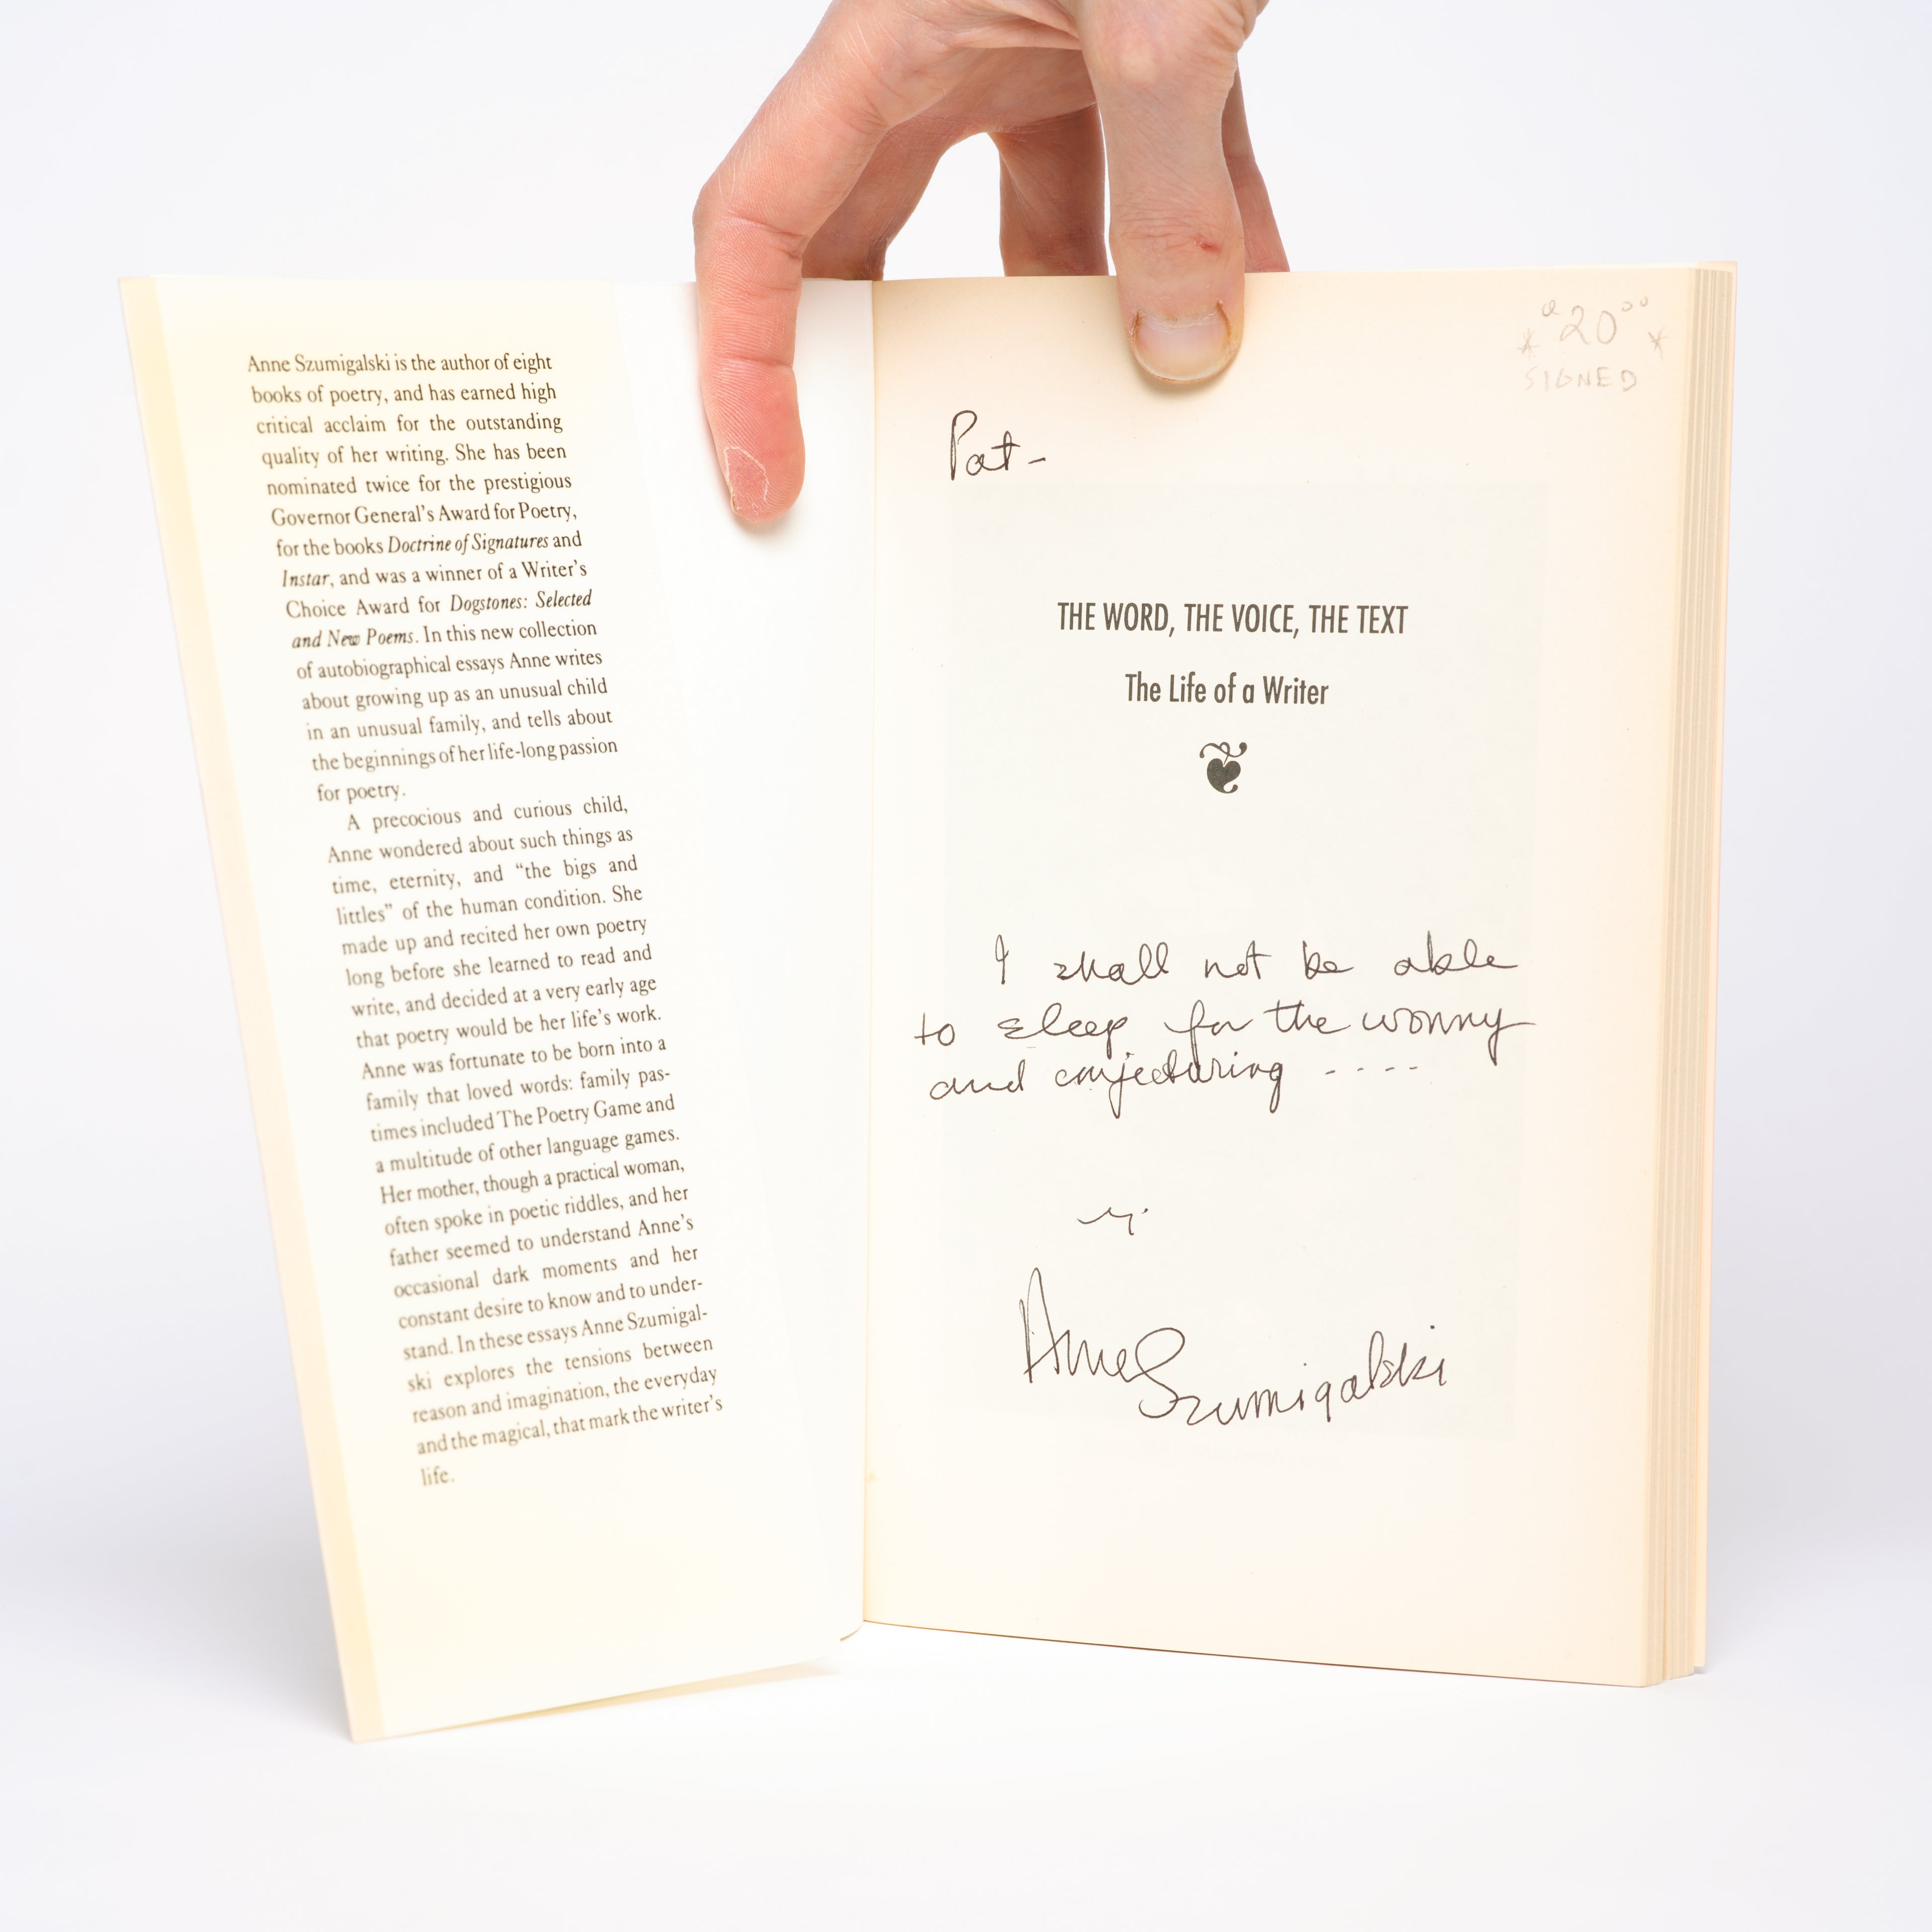 Anne Szumigalski is the author of eight
books of poetry, and has earned high
critical acclaim for the outstanding
quality of her writing. She has been
nominated twice for the prestigious
Governor General's Award for Poetry,
for the books Doctrine of Signatures and
Instar, and was a winner of a Writer's
Choice Award for Dogstones: Selected
and New Poems. In this new collection
of autobiographical essays Anne writes
about growing up as an unusual child
in an unusual family, and tells about
the beginnings of her life-long passion
for poetry.
A precocious and curious child,
Anne wondered about such things as
time, eternity, and “the bigs and
littles” of the human condition. She
made up and recited her own poetry
long before she learned to read and
write, and decided at a very early age
that poetry would be her life's work.
Anne was fortunate to be born into a
family that loved words: family pas-
times included The Poetry Game and
a multitude of other language games.
Her mother, though a practical woman,
often spoke in poetic riddles, and her
father seemed to understand Anne's
occasional dark moments and her
constant desire to know and to under-
stand. In these essays Anne Szumigal-
ski explores the tensions between
reason and imagination, the everyday
and the magical, that mark the writer's
life.
20°°
* *
SIGNED
Pat -
THE WORD, THE VOICE, THE TEXT
The Life of a Writer
I shall not be able
to sleep for the worry
and conjecturing ----
Anne
Szumigalski